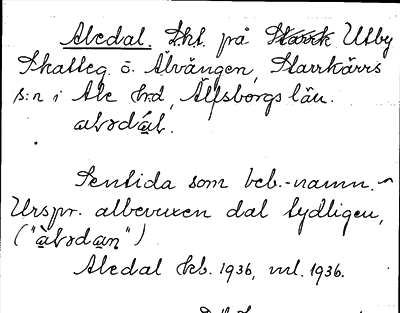 Aledal. Lht. på Utby
Skatteg. ö. Älvängen, Starrkärrs
s:n i Ale hrd, Älfsborgs län.

Sentida som beb.-namn.
Urspr. albevuxen dal tydligen,
Aledal kb. 1936, ml. 1936.